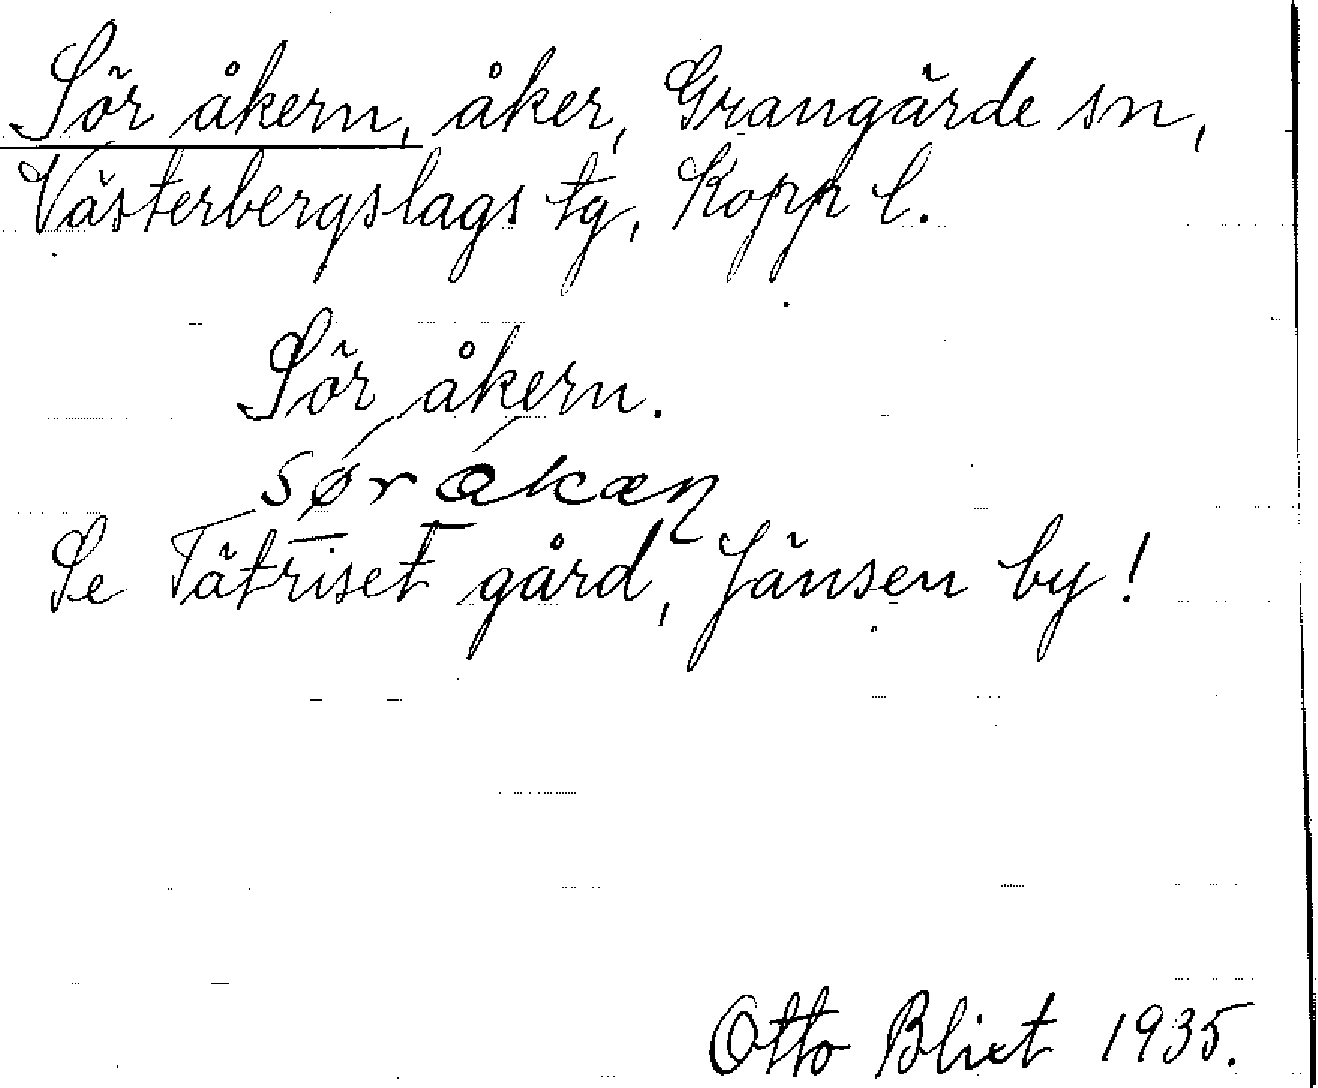 Sör åkern, åker, Grangärde sn,
Västerbergslags tg, Kopp l.
Sör åkern.
sør åkæn
Se Tätriset gård, Jänsen by!
Otto Blixt 1935.